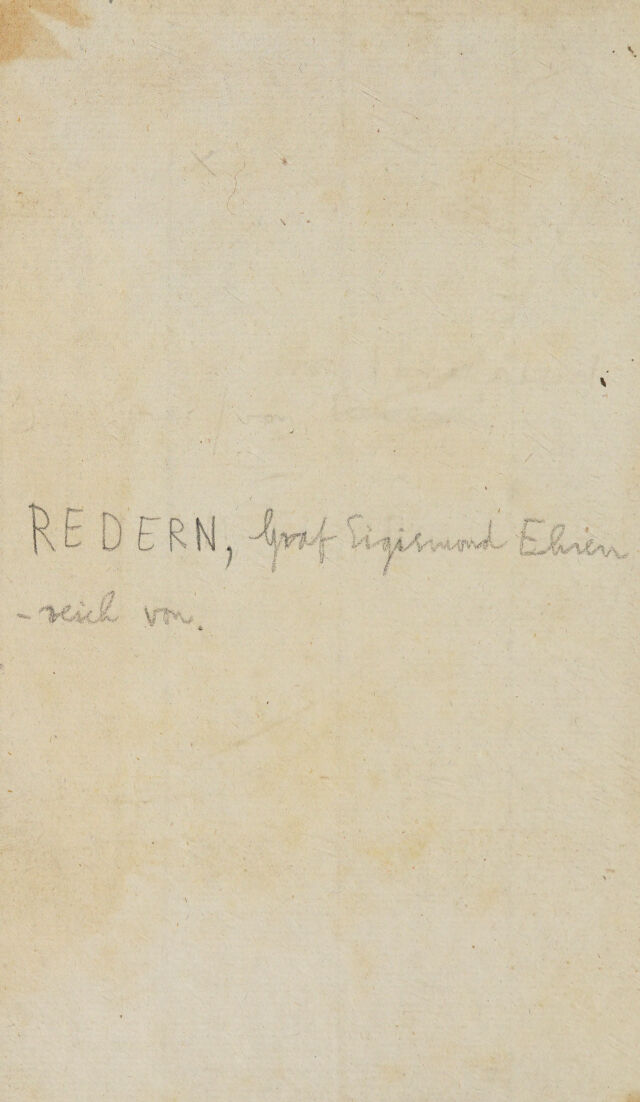 REDERN, Graf Sigismund Ehren
-reich von.